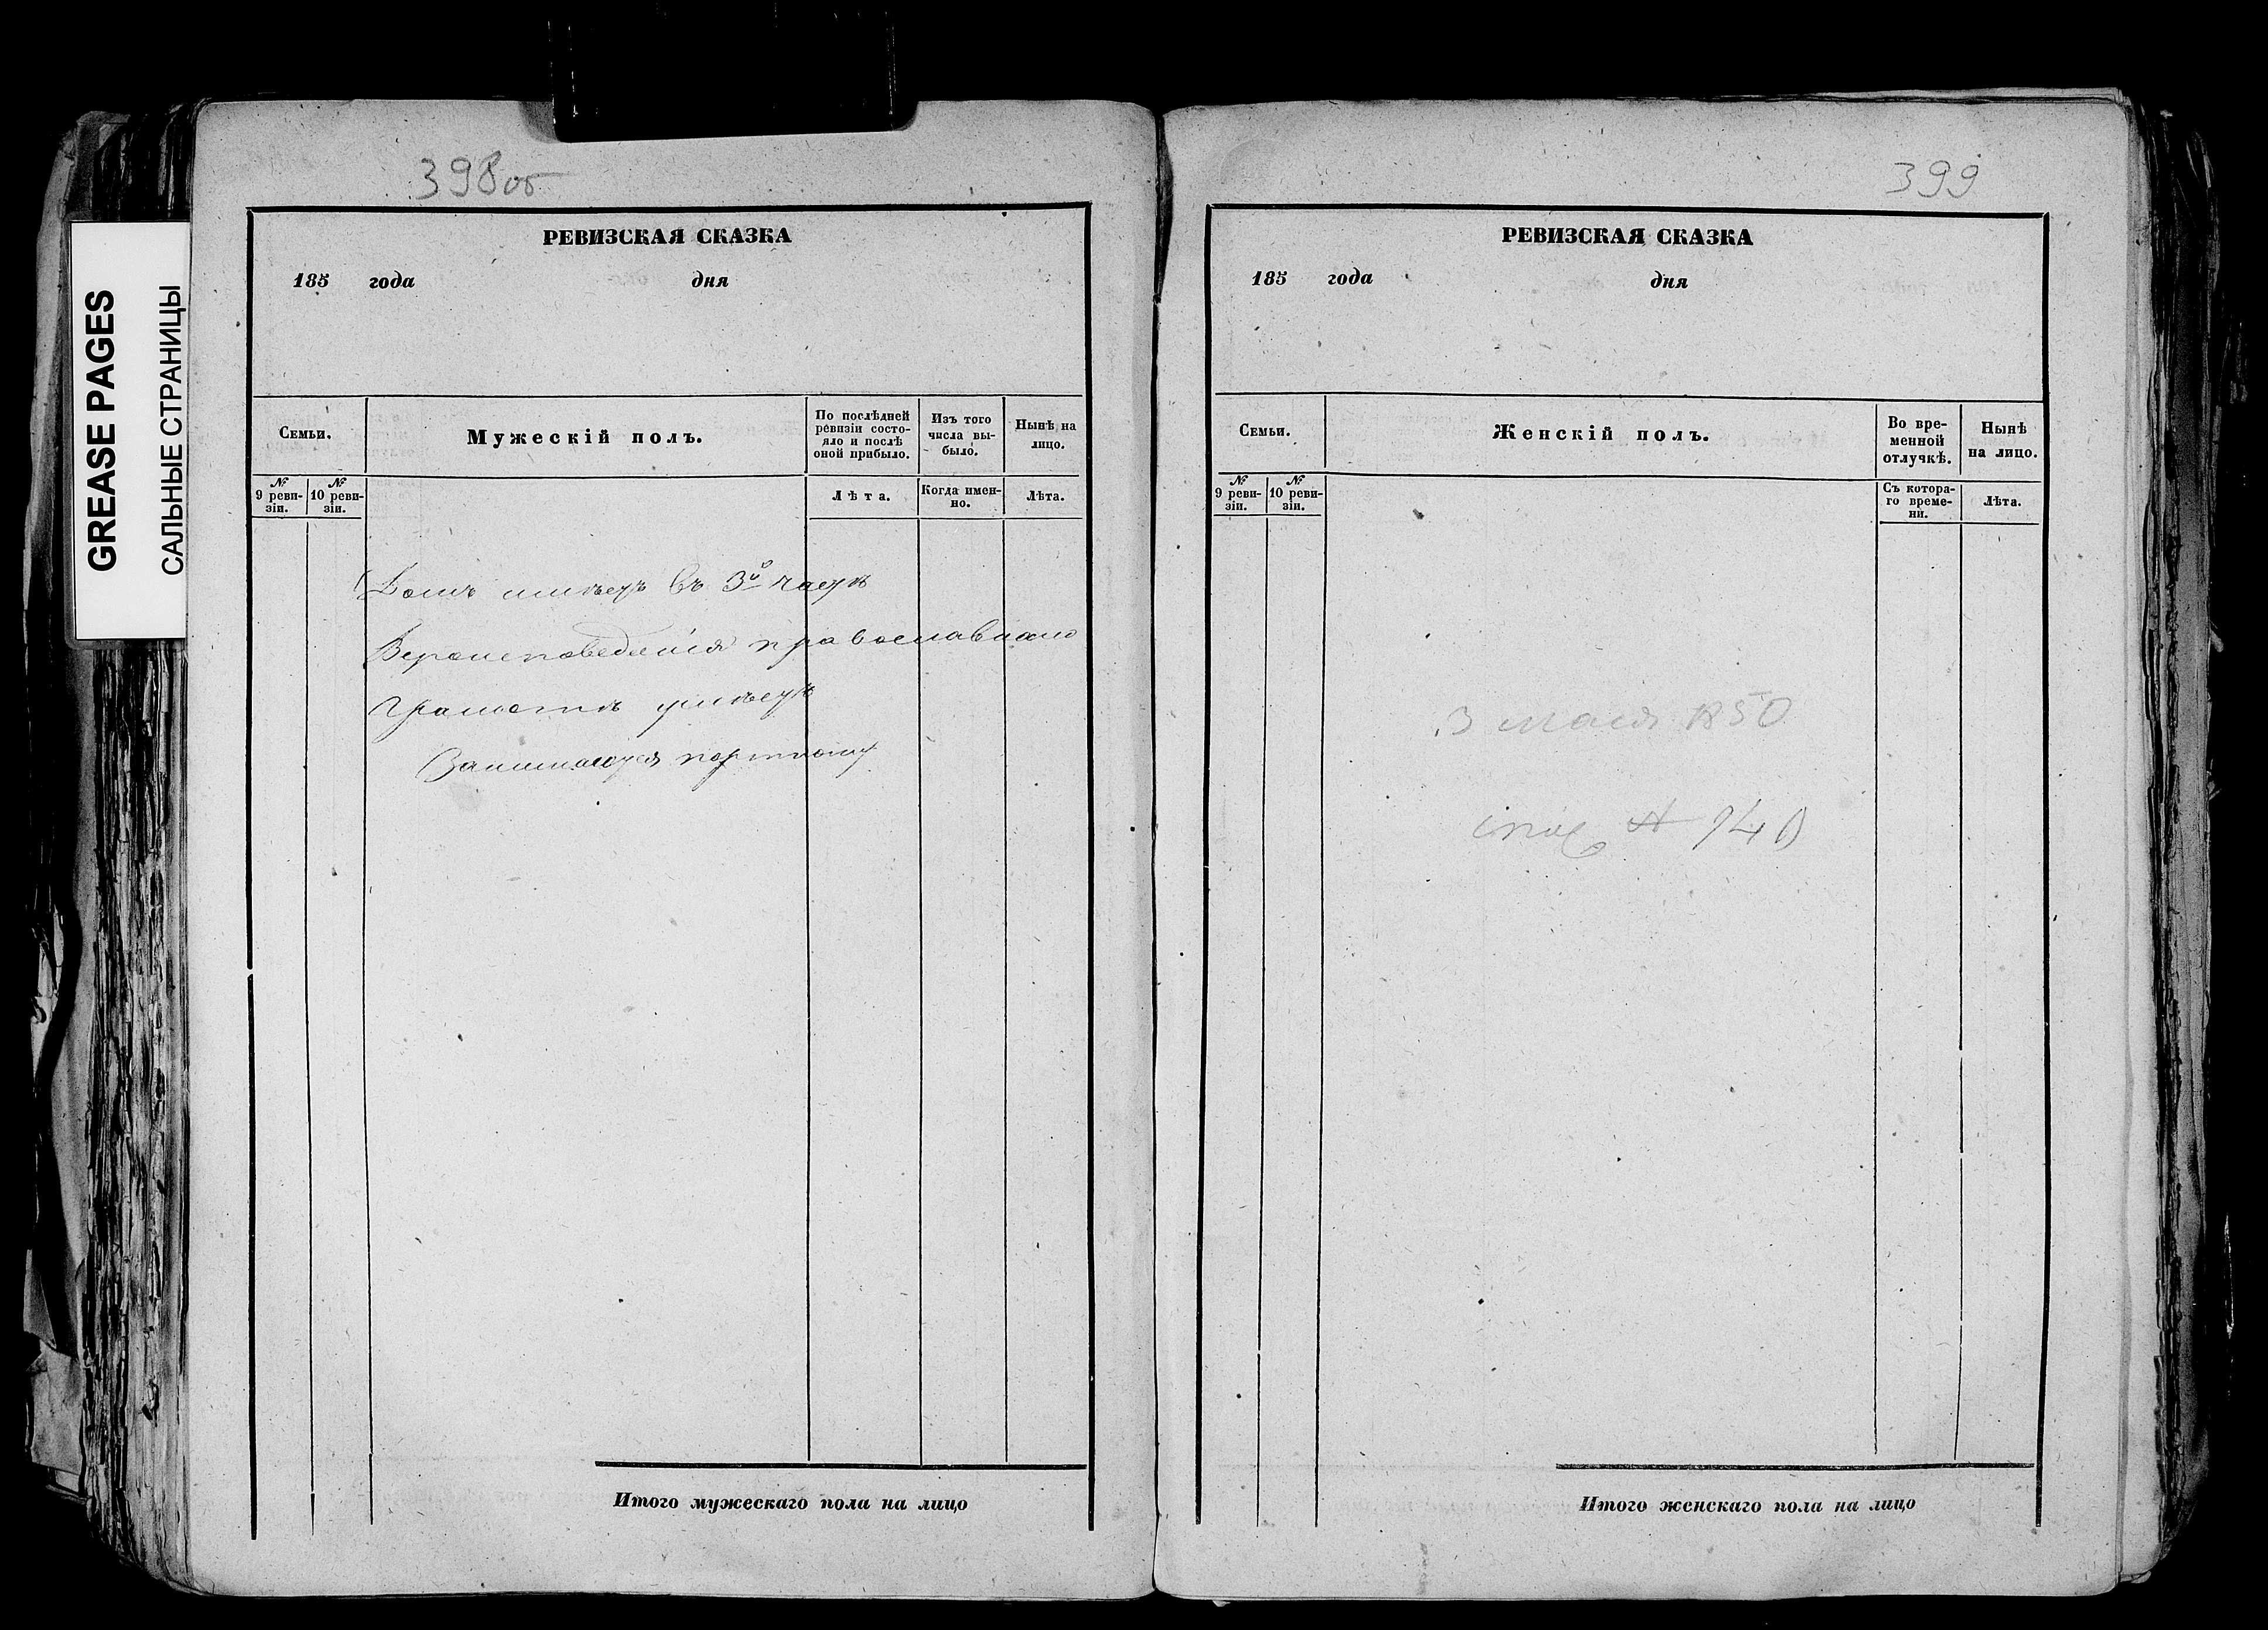 GREASE PAGES
САЛЬНЫЕ СТРАНИЦЫ
398об
РЕВИЗСКАЯ СКАЗКА
185 года дня
Семьи.
Мужескій полъ.
По послѣдней ревизіи состо-
яло и послѣ
оной прибыло.
Изъ того
числа вы-
было.
Нынѣ на
лицо.
№
9 реви-
зіи.
№
10 реви-
зіи.
Лѣта.
Когда имен-
но.
Лѣта.
Домъ имѣетъ въ 3й части
Вероисповеданія православнаго
Грамотѣ умѣетъ
Занимается портному
Итого мужескаго пола на лицо
399
РЕВИЗСКАЯ СКАЗКА
185 года дня
Семьи.
Женскій полъ.
Во вре-
менной
отлучкѣ.
Нынѣ
на лицо.
№
9 реви-
зіи.
№
10 реви-
зіи.
Съ котора-
го време-
ни.
Лѣта.
3 1850
Итого женскаго пола на лицо